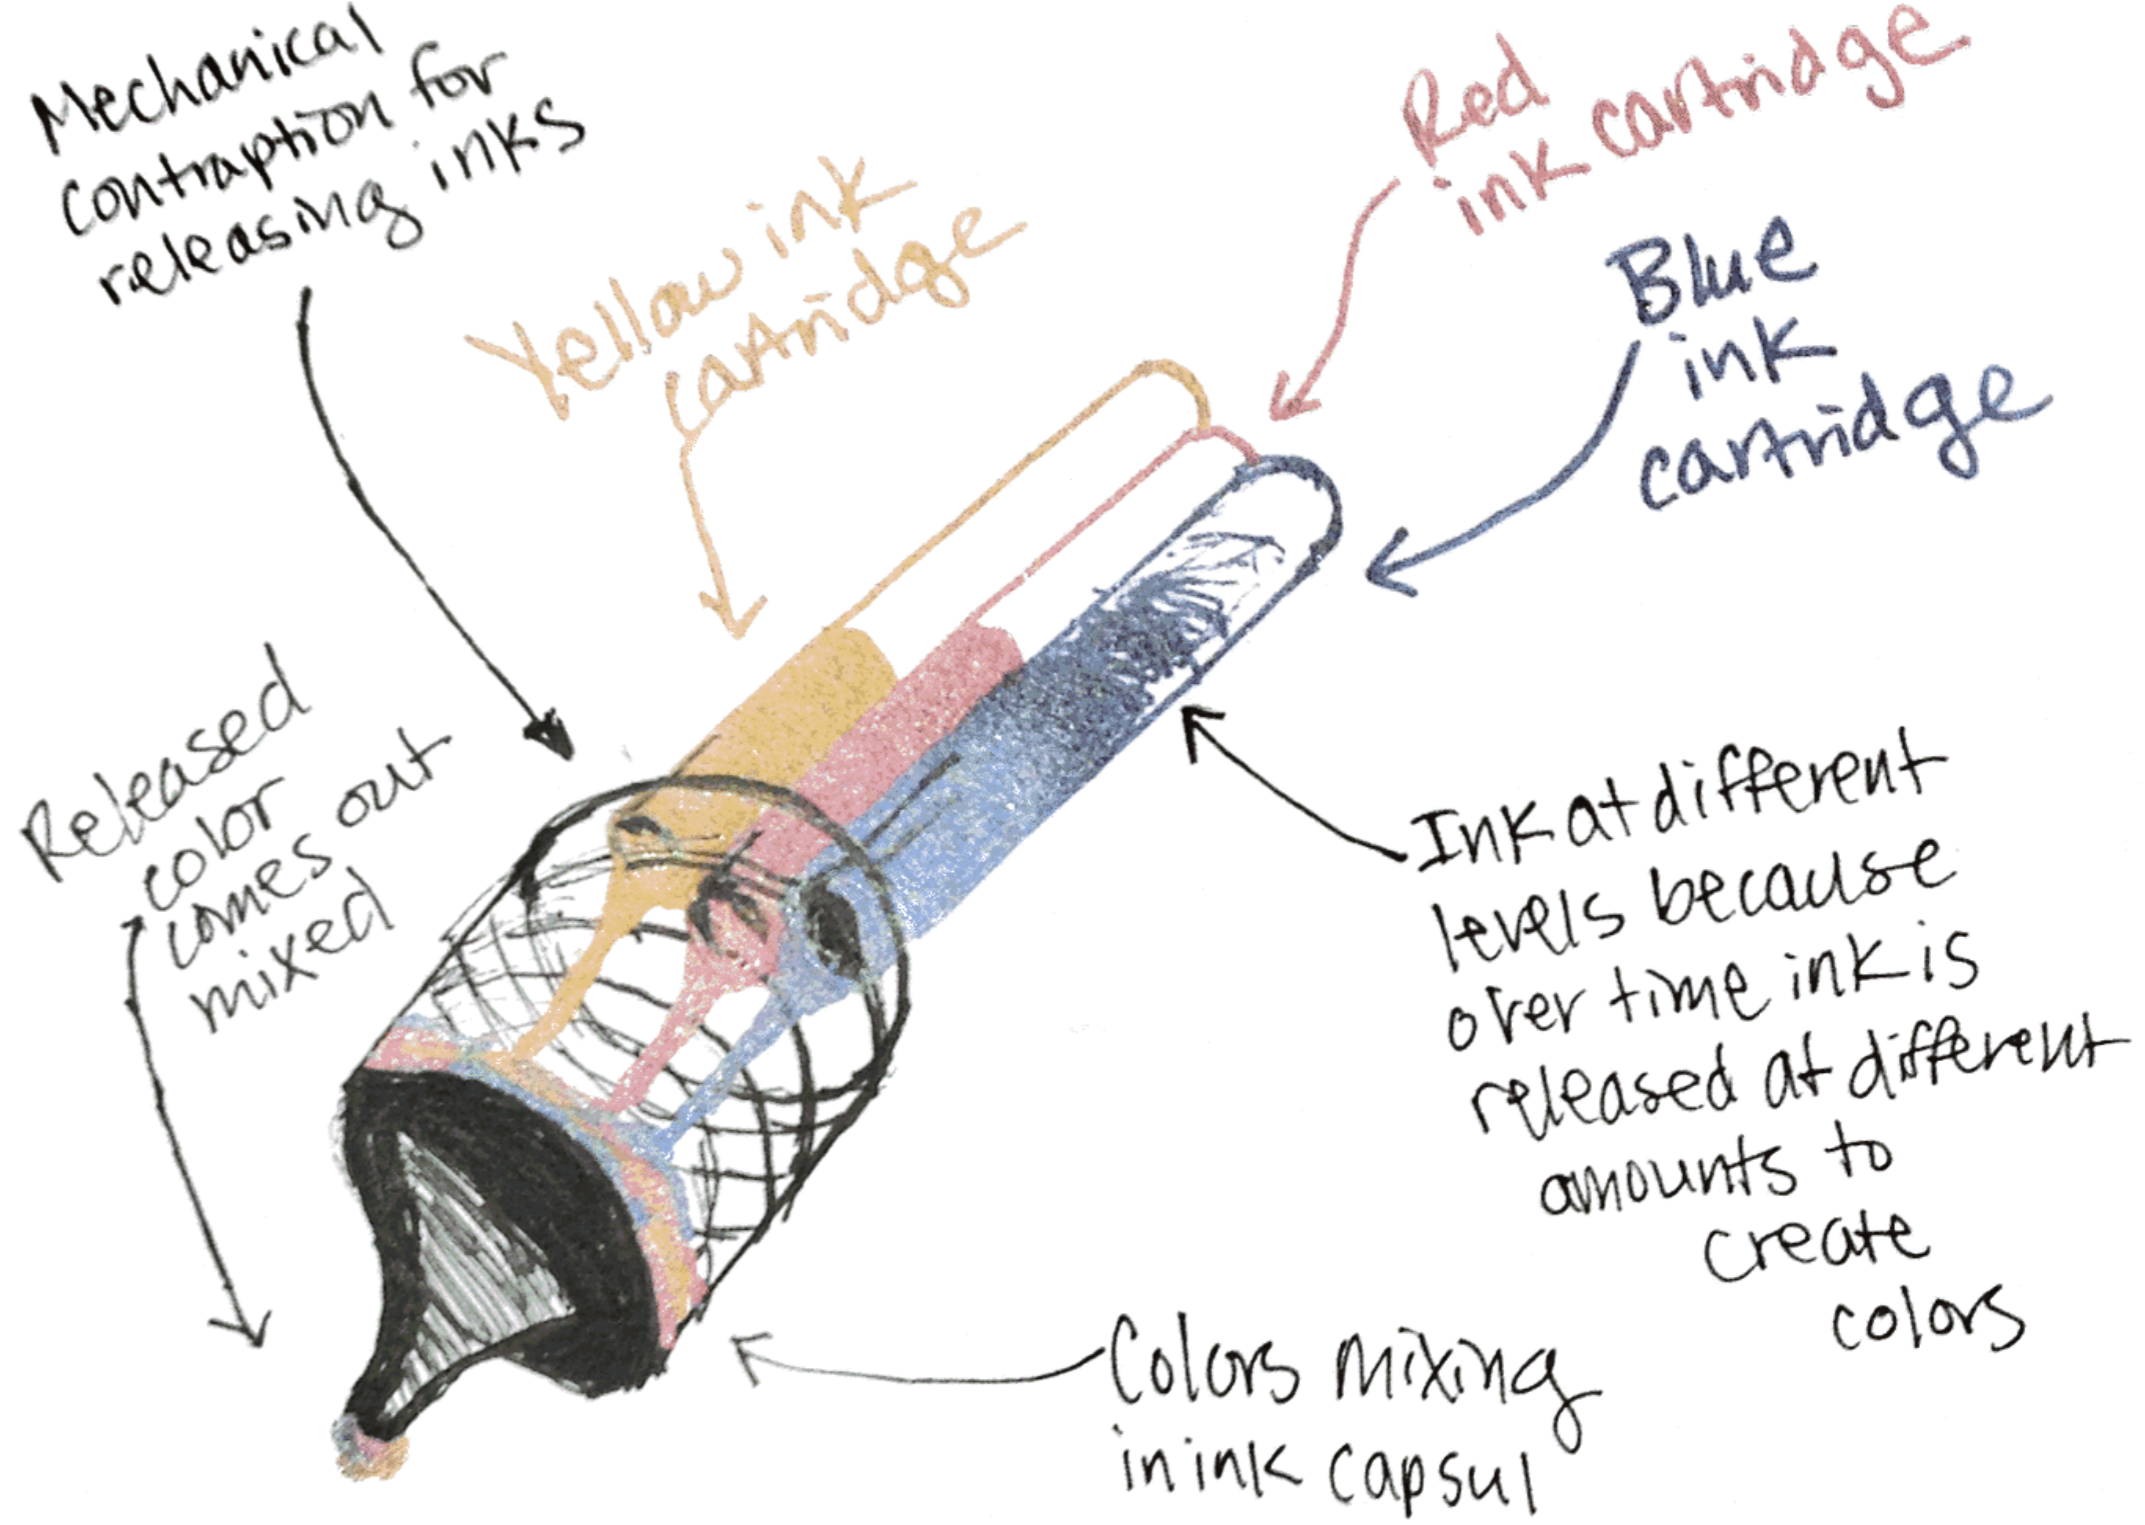 Mechanical
contraption for
releasing inks
Yellow ink
cartridge
Red
ink cartridge
Blue
ink
cartridge
Released
color
comes out
mixed
Ink at different
levels because
over time ink is
released at different
amounts to
create
colors
Colors mixing
in ink capsul